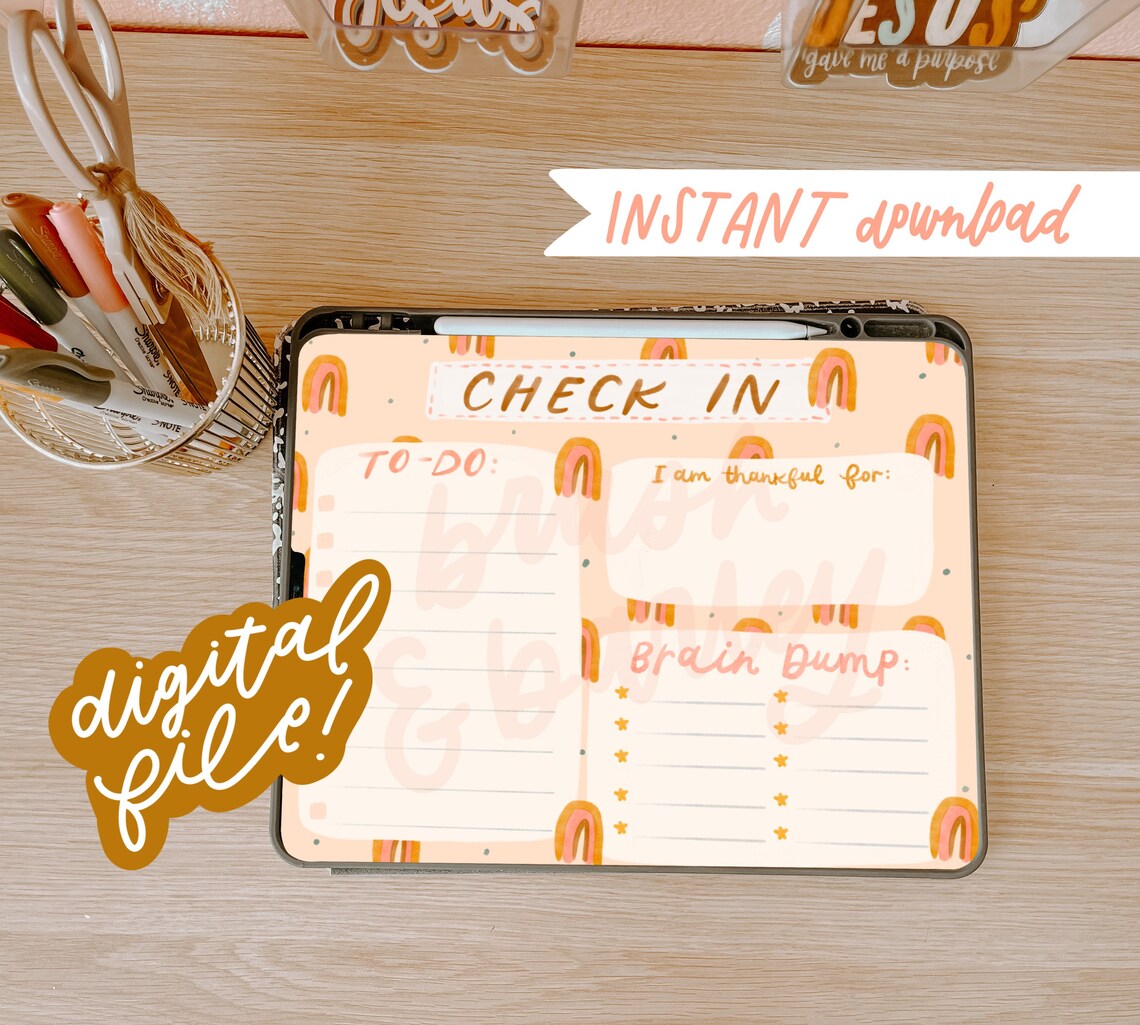 Jesus
JESUS
gave me a purpose
INSTANT download
CHECK IN
TO-DO:
I am thankful for:
brush
& barley
Brain Dump:
digital
file!
Sharpie
Sharpie
S·NOTE